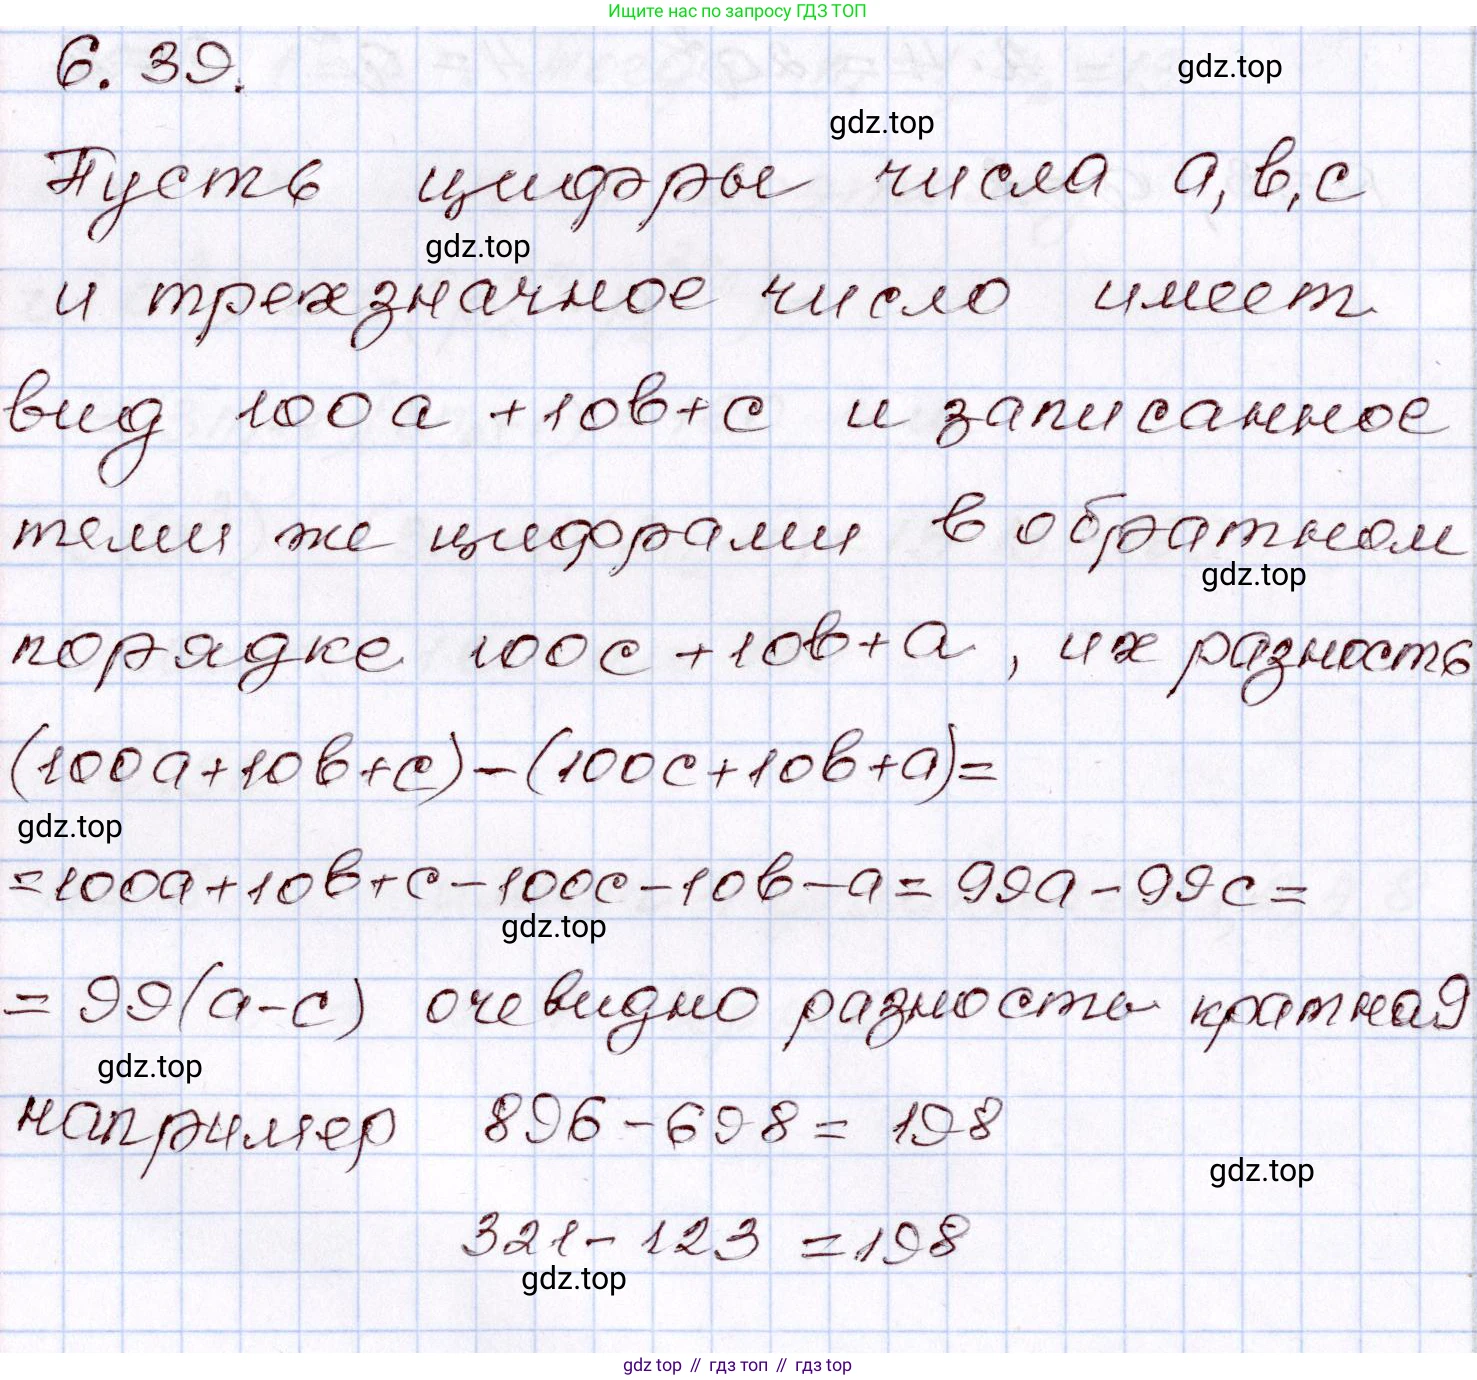 Ищите нас по запросу ГДЗ ТОП
6.39.
gdz.top
gdz.top
Пусть цифры числа a, b, c
gdz.top
и трехзначное число имеет
вид 100a + 10b + c и записанное
теми же цифрами в обратном
gdz.top
порядке 100c + 10b + a, их разность
(100a + 10b + c) - (100c + 10b + a) =
gdz.top
= 100a + 10b + c - 100c - 10b - a = 99a - 99c =
gdz.top
= 99(a - c) очевидно разность кратна 9
gdz.top
например 896 - 698 = 198
gdz.top
321 - 123 = 198
gdz.top
gdz top // гдз топ // гдз top